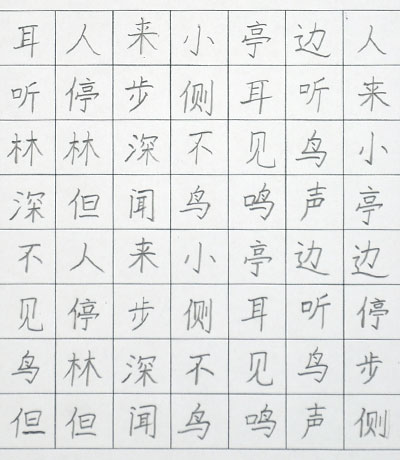 耳人来小亭边人
听停步侧耳听来
林林深不见鸟小
深但闻鸟鸣声亭
不人来小亭边边
见停步侧耳听停
鸟林深不见鸟步
但但闻鸟鸣声侧